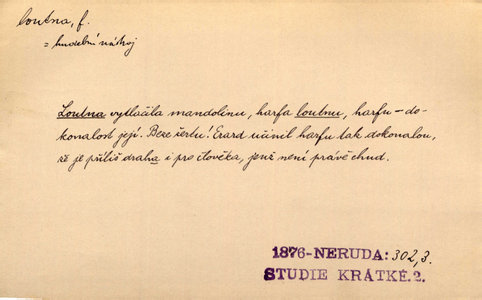 loutna, f.
= hudební nástroj
Loutna vytlačila mandolinu, harfa loutnu, harfu – do-
konalost její. Beze žertu! Erard učinil harfu tak dokonalou,
že je příliš drahá i pro člověka, jenž není právě chud.
1876-NERUDA: 302,3.
STUDIE KRÁTKÉ.2.